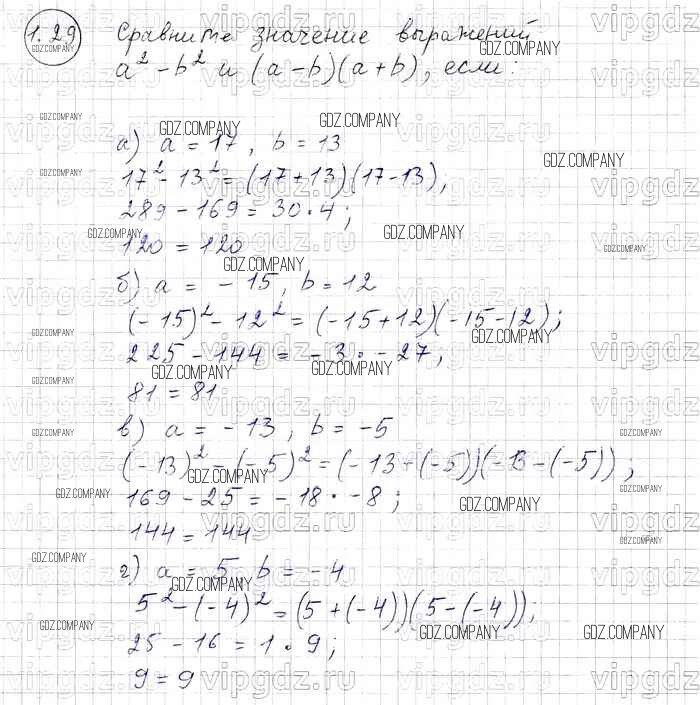 1.29 Сравните значение выражений
a² - b² и (a - b)(a + b), если:
а) a = 17, b = 13
17² - 13² = (17 + 13)(17 - 13),
289 - 169 = 30 · 4;
120 = 120
б) a = - 15, b = 12
(- 15)² - 12² = (-15 + 12)(-15 - 12);
225 - 144 = - 3 · - 27,
81 = 81
в) a = - 13, b = - 5
(- 13)² - (- 5)² = (- 13 + (- 5))(- 13 - (- 5));
169 - 25 = - 18 · - 8;
144 = 144
г) a = 5, b = - 4
5² - (- 4)² = (5 + (- 4))(5 - (- 4));
25 - 16 = 1 · 9;
9 = 9
GDZ.COMPANY
vipgdz.ru